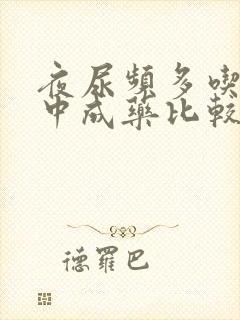 夜尿頻多喫
中成藥比較
德羅巴